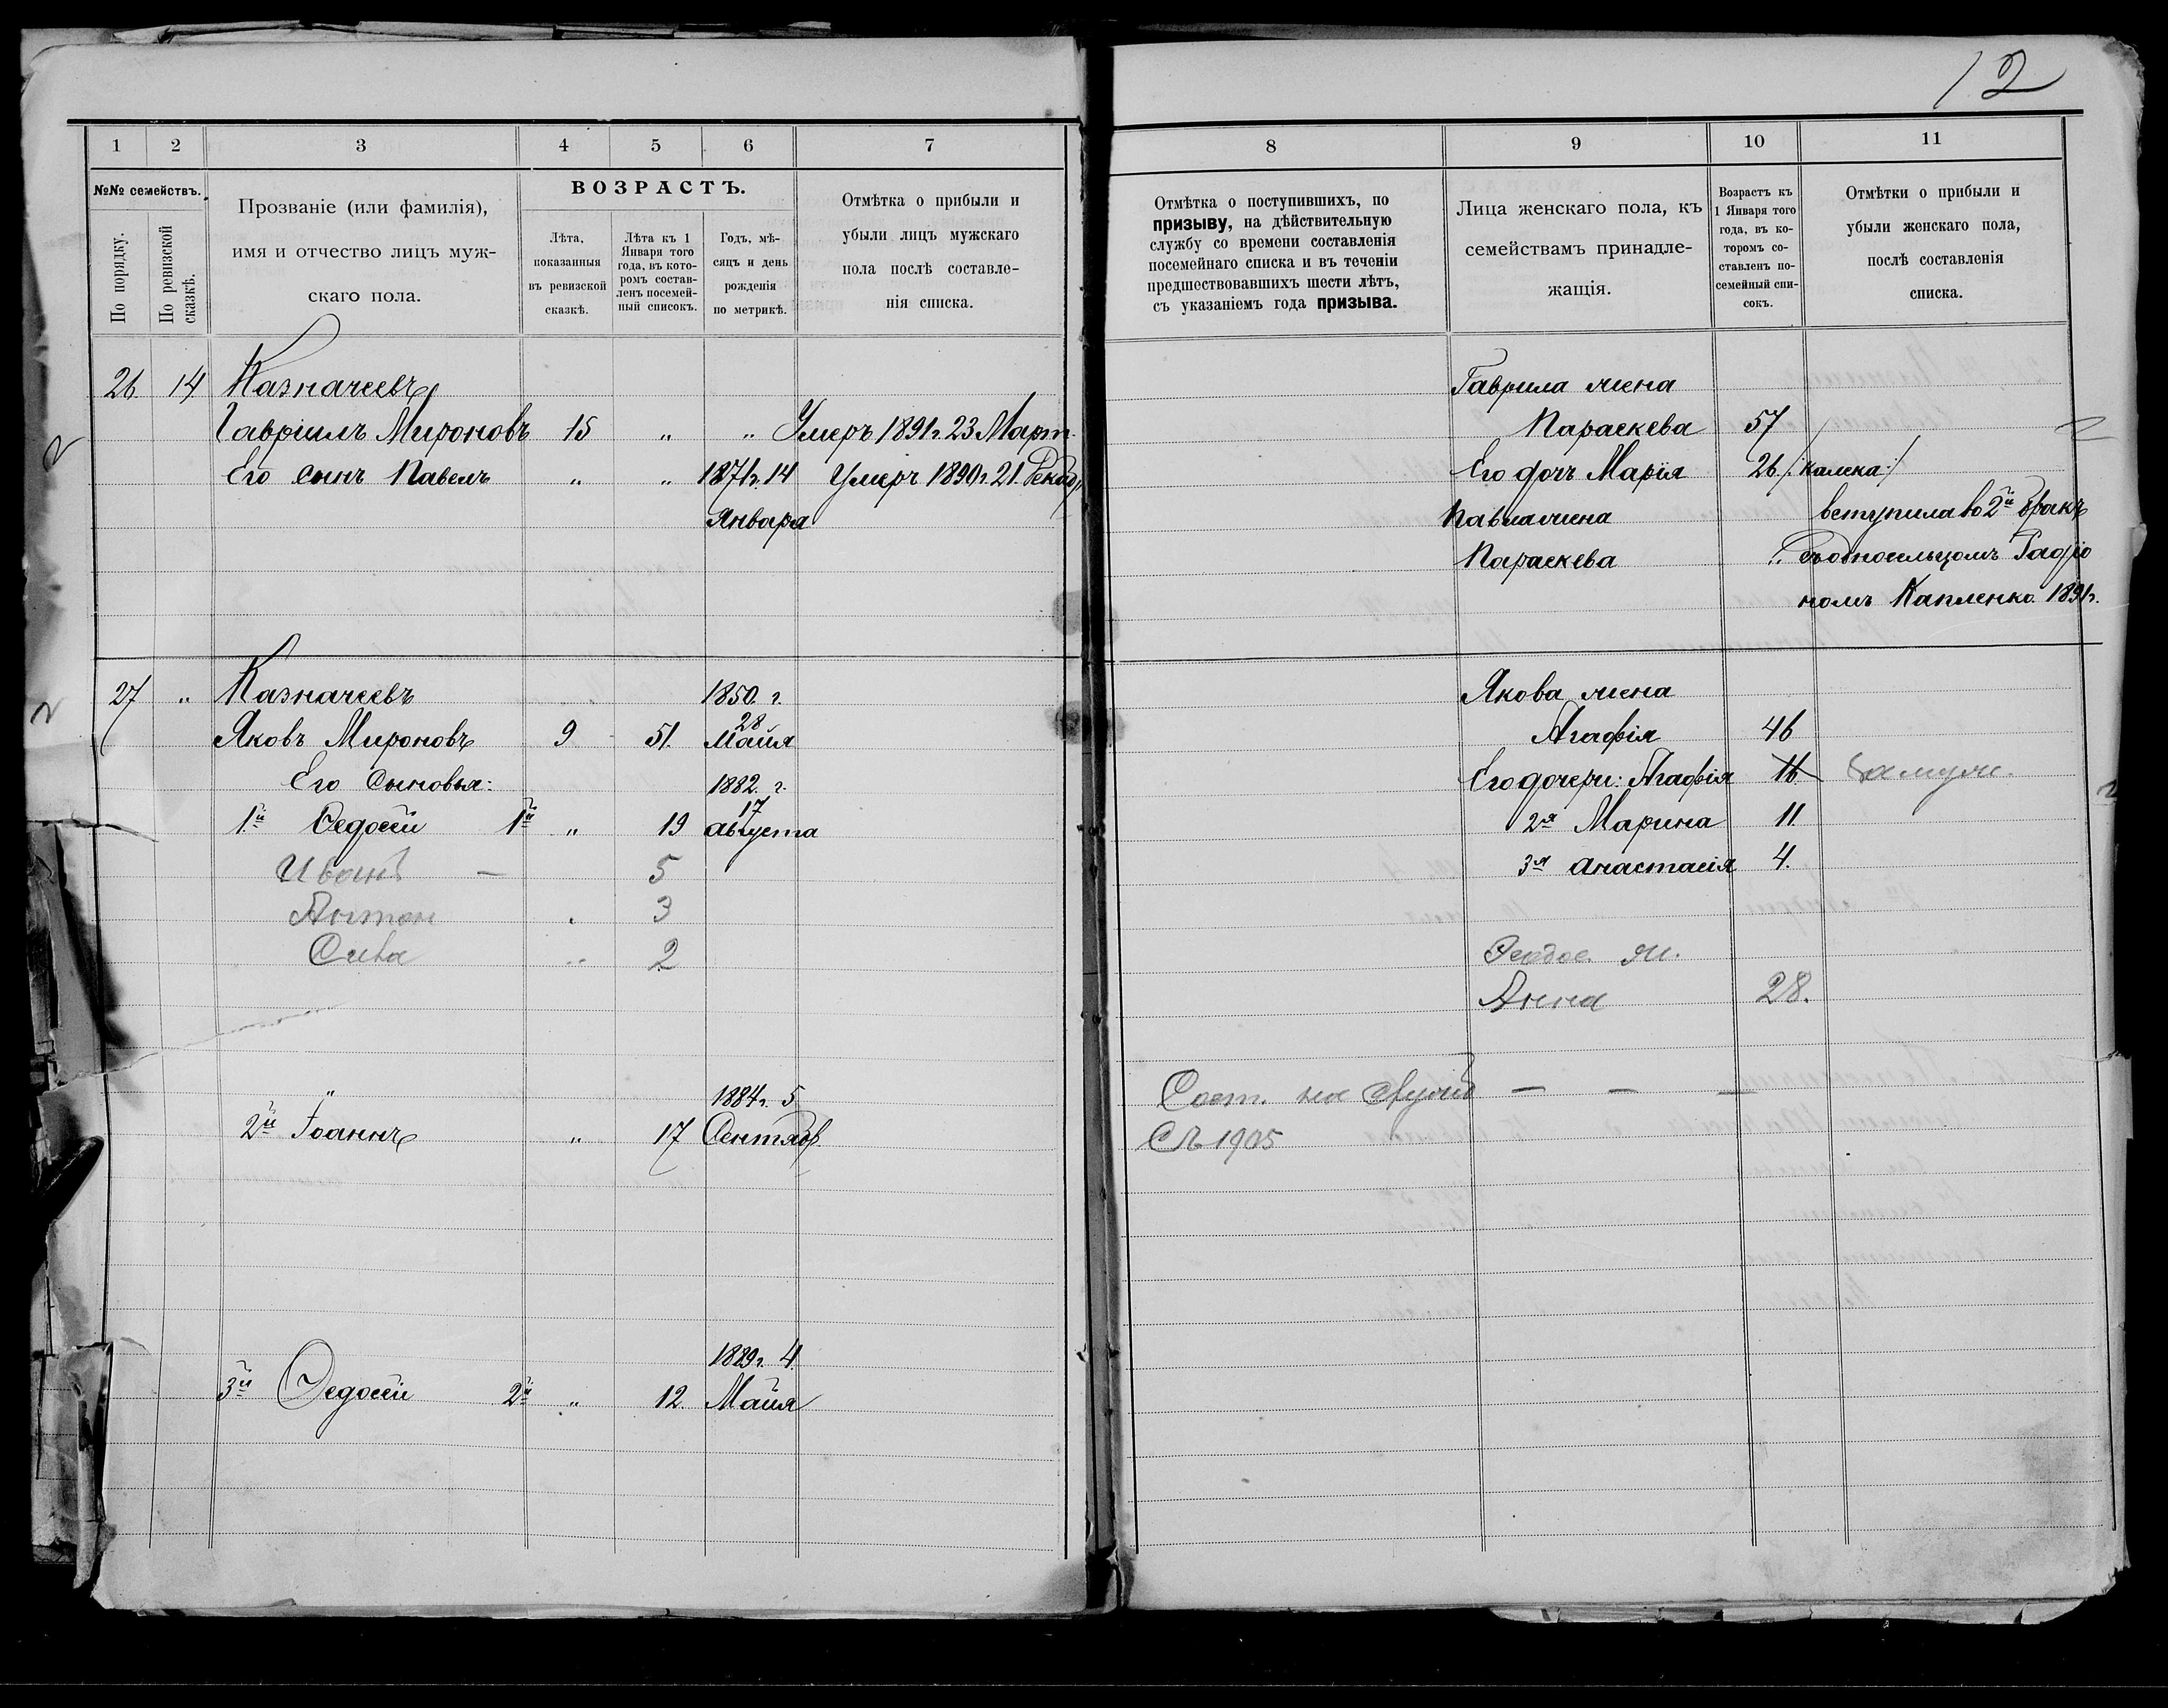 12
1 2 3 4 5 6 7
№№ семействъ.
По порядку.
По ревизской сказкѣ.
Прозваніе (или фамилія),
имя и отчество лицъ муж-
скаго пола.
ВОЗРАСТЪ.
Лѣта,
показанныя
въ ревизской
сказкѣ.
Лѣта къ 1
Января того
года, въ кото-
ромъ состав-
ленъ посемей-
ный список.
Годъ, мѣ-
сяцъ и день
рожденія
по метрикѣ.
Отмѣтка о прибыли и
убыли лицъ мужскаго
пола послѣ составле-
нія списка.
26 14 Казначеевъ
Гавріилъ Мироновъ 15 „ „ Умеръ 1891 г. 23 Март.
Его сынъ Павелъ „ „ 1871 г. 14 Умеръ 1890 г. 21.
Января
27 „ Казначеевъ 1850. г.
28
Яковъ Мироновъ 9 51. Майя
Его Сыновья: 1882. г.
17
1й Федосій 1й „ 19 августа
Иванъ — 5
Антон 3
Сива „ 2
„ 1884 г. 5
2й Іоаннъ „ 17 Сентябр.
1889 г. 4.
3й Федосій 2й „ 12. Майя
8 9 10 11
Отмѣтка о поступившихъ, по
призыву, на дѣйствительную
службу со времени составленія
посемейнаго списка и въ теченіи
предшествовавшихъ шести лѣтъ,
съ указаніемъ года призыва.
Лица женскаго пола, къ
семействамъ принадле-
жащія.
Возрастъ къ
1 Января того
года, въ ко-
торомъ со-
ставленъ по-
семейный спи-
сокъ.
Отмѣтки о прибыли и
убыли женскаго пола,
послѣ составленія
списка.
Гаврила жена
Параскева 57
Его дочь Марія 26 /: калека :/
Павла жена вступила во 2й бракъ
Параскева „ съ односельцомъ Гадріо
номъ Капленко. 1891 г.
Якова жена
Агафія 46
Его дочери: Агафія 16 замуж.
2я Марина 11.
3я Анастасія 4.
Феодос. ж.
Анна 28.
Сост. на служб — — —
Съ 1905